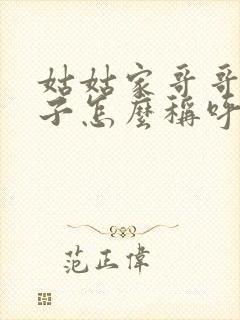 姑姑家哥哥
子怎麼稱呼
范正偉